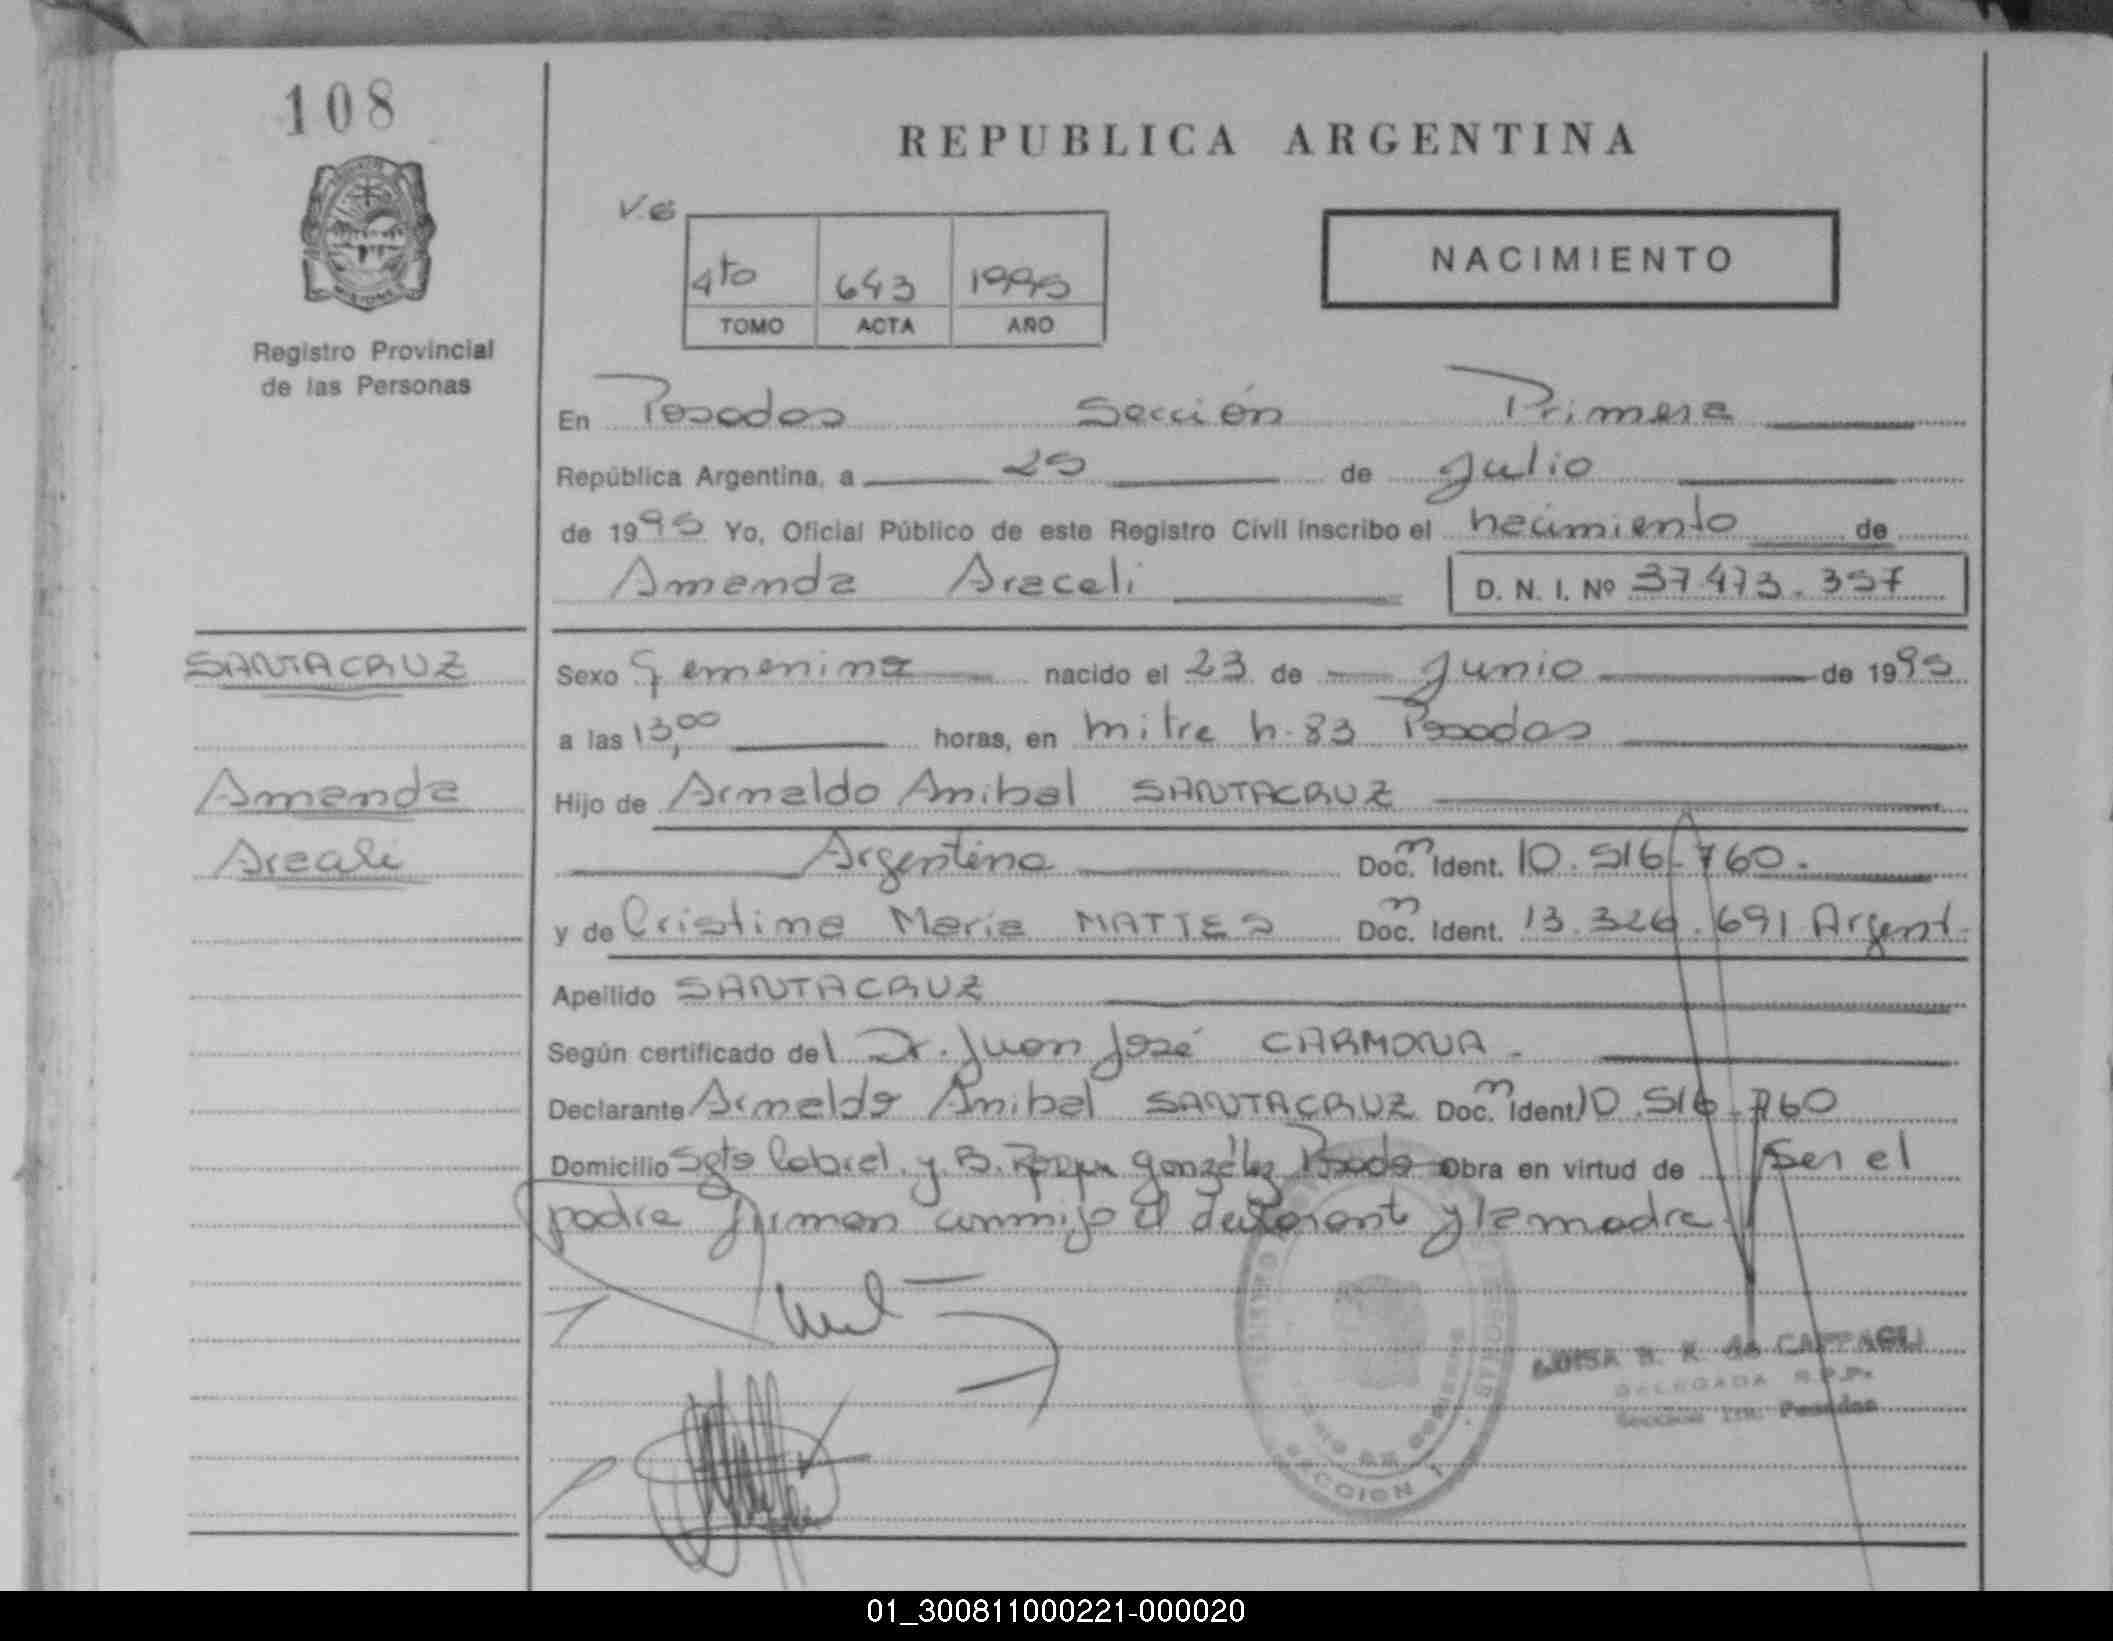 108
REPUBLICA ARGENTINA
V.6
NACIMIENTO
4to 643 1995
TOMO ACTA AÑO
Registro Provincial
de las Personas
En Posadas Sección Primera
República Argentina, a 25 de Julio
de 1995 Yo, Oficial Público de este Registro Civil inscribo el nacimiento de
Amanda Araceli D. N. I. Nº 37.473.357
SANTACRUZ
Sexo Femenina nacido el 23 de Junio de 1995
a las 13,00 horas, en Mitre n. 83 Posadas
Amanda
Hijo de Arnaldo Anibal SANTACRUZ
Araceli
Argentina Doc. n Ident. 10.516.760.
y de Cristina Maria MATTES Doc. n Ident. 13.326.691 Argent.
Apellido SANTACRUZ
Según certificado del Dr. Juan José CARMONA.
Declarante Arnaldo Anibal SANTACRUZ Doc. n Ident. 10.516.760
Domicilio Sgto Cabral y B. Roque González Posadas Obra en virtud de Ser el
padre firman conmigo el declarante y la madre.
LUISA B. K. de CAPPAGLI
DELEGADA R.P.P.
Sección 1ra. Posadas
SECCION 1
01_300811000221-000020